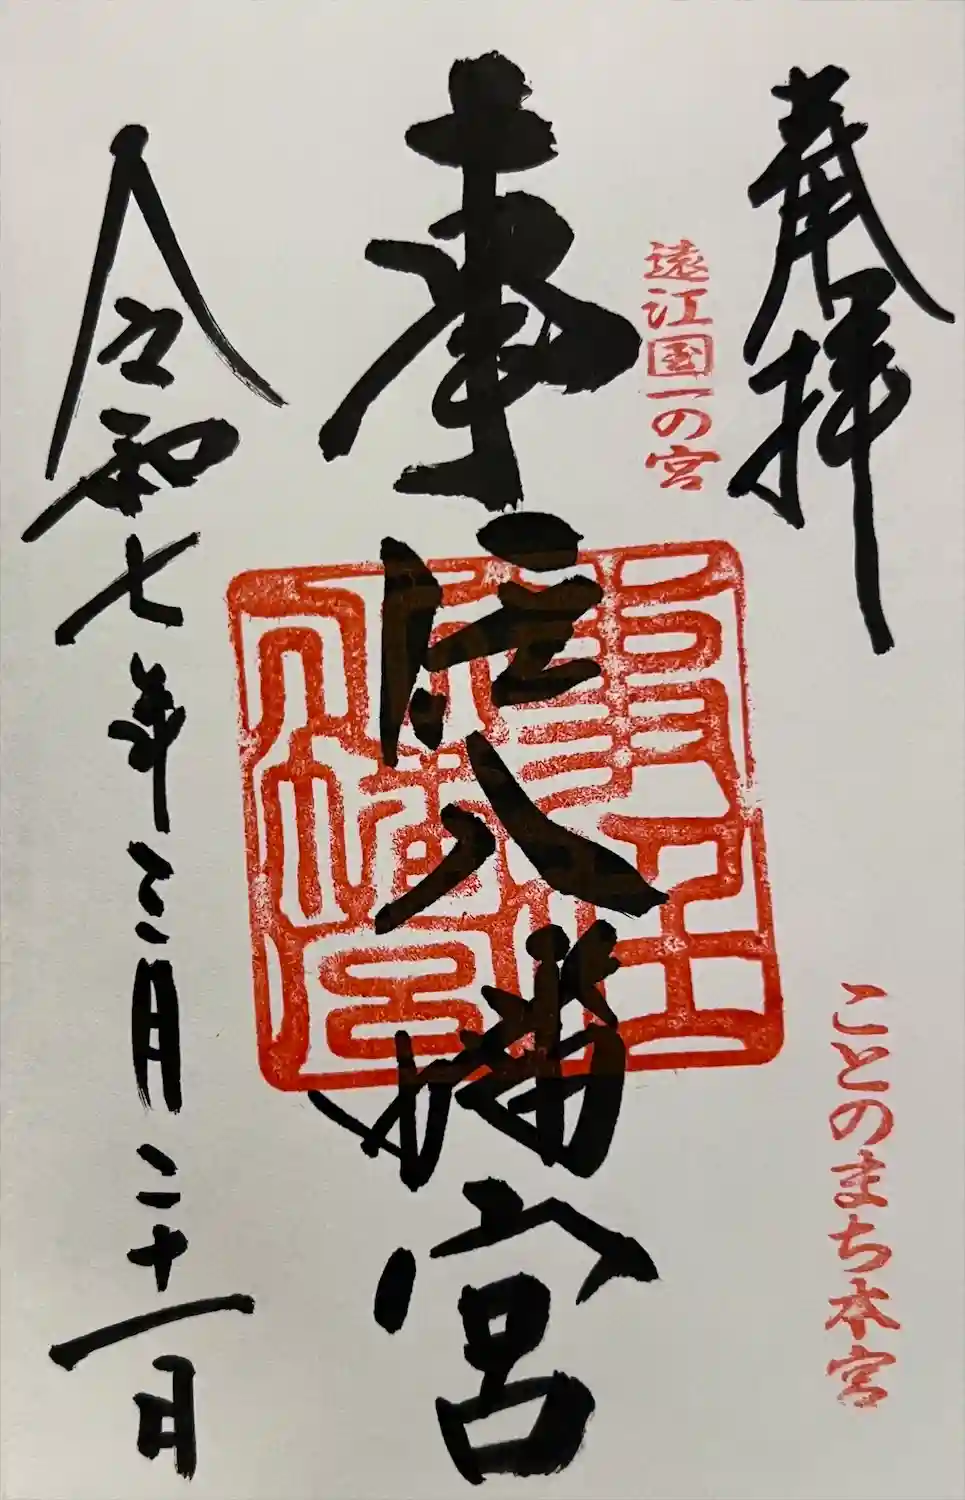 奉拝
遠江国一の宮
ことのまち本宮
事任八幡宮
事任八幡宮
令和七年三月二十一日